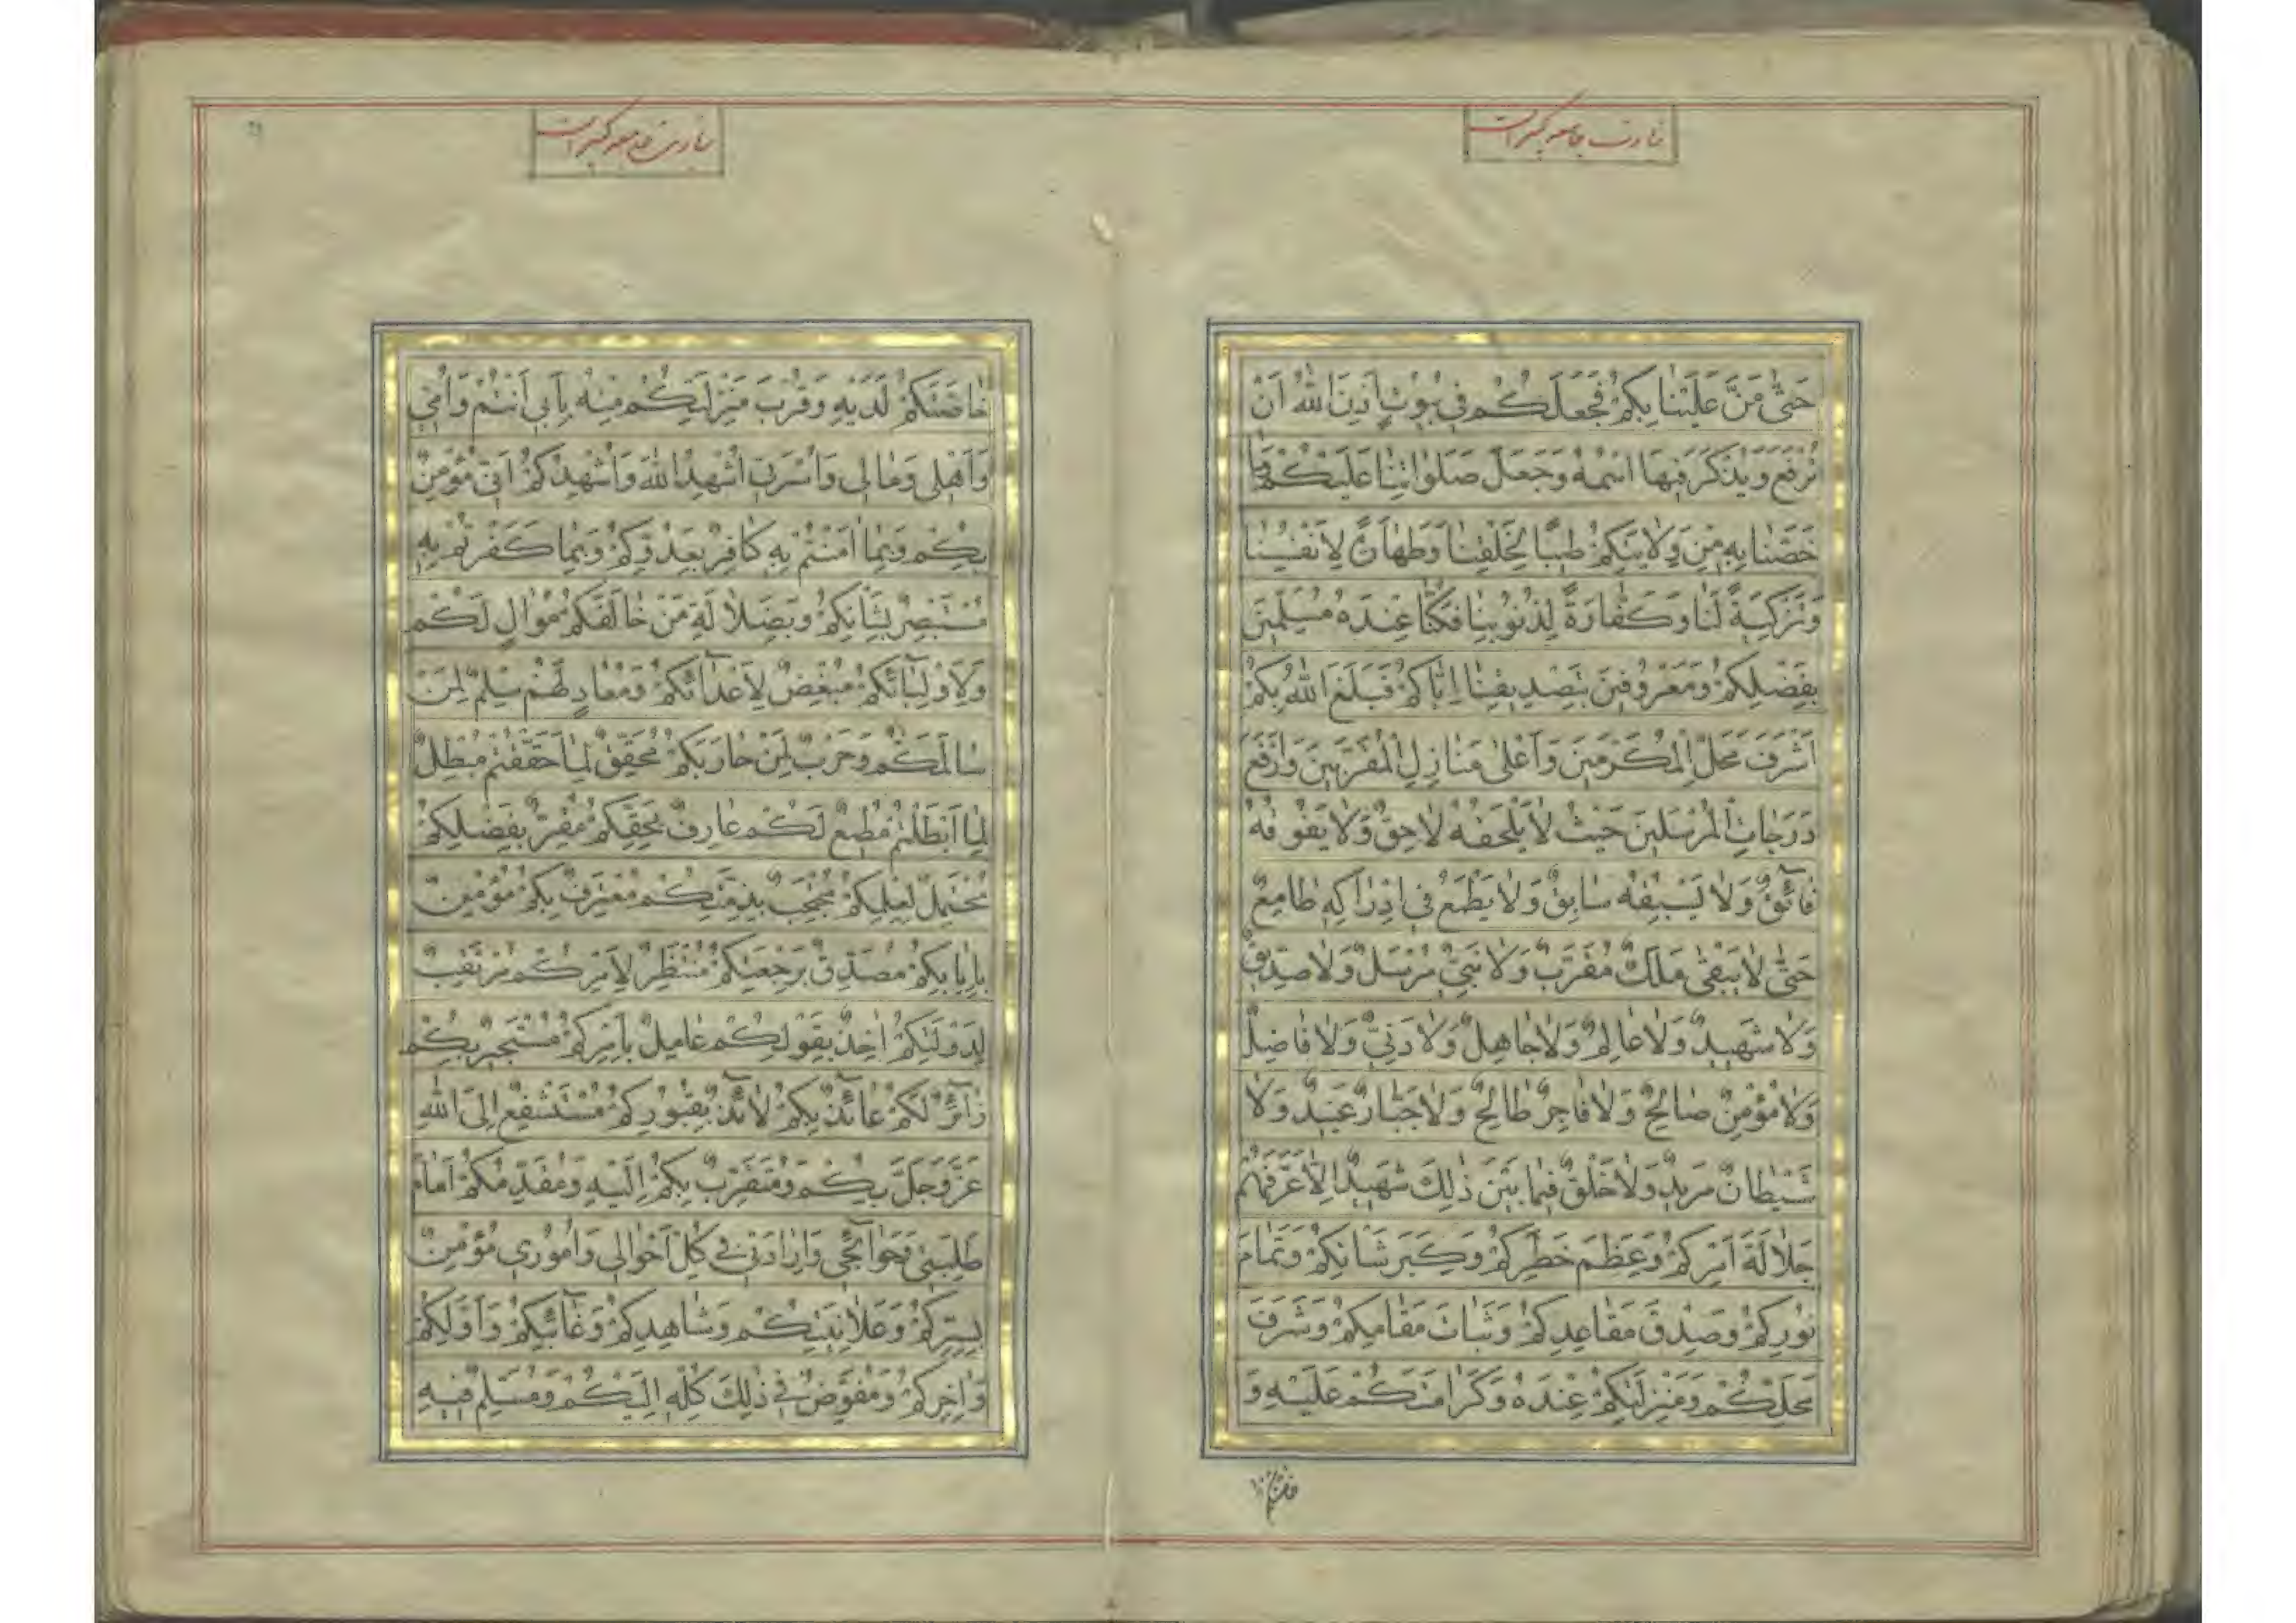 زیارت جامعه کبیر است
حَتّٰى مَنَّ عَلَيْنا بِكُمْ فَجَعَلَكُمْ في بُيُوتٍ اَذِنَ اللّٰهُ اَنْ
تُرْفَعَ وَيُذْكَرَ فيهَا اسْمُهُ وَجَعَلَ صَلَوٰاتِنٰا عَلَيْكُمْ وَمٰا
خَصَّنٰا بِهِ مِنْ وِلاٰيَتِكُمْ طيبًا لِخَلْقِنٰا وَطَهٰارَةً لِاَنْفُسِنٰا
وَتَزْكِيَةً لَنٰا وَكَفّٰارَةً لِذُنُوبِنٰا فَكُنّٰا عِنْدَهُ مُسَلِّمينَ
بِفَضْلِكُمْ وَمَعْرُوفينَ بِتَصْديقِنٰا اِيّٰاكُمْ فَبَلَغَ اللّٰهُ بِكُمْ
اَشْرَفَ مَحَلِّ الْمُكَرَّمينَ وَاَعْلىٰ مَنٰازِلِ الْمُقَرَّبينَ وَاَرْفَعَ
دَرَجٰاتِ الْمُرْسَلينَ حَيْثُ لاٰ يَلْحَقُهُ لاٰحِقٌ وَلاٰ يَفُوقُهُ
فٰائِقٌ وَلاٰ يَسْبِقُهُ سٰابِقٌ وَلاٰ يَطْمَعُ في اِدْرٰاكِهِ طٰامِعٌ
حَتّٰى لاٰ يَبْقىٰ مَلَكٌ مُقَرَّبٌ وَلاٰ نَبِيٌّ مُرْسَلٌ وَلاٰ صِدّيقٌ
وَلاٰ شَهيدٌ وَلاٰ عٰالِمٌ وَلاٰ جٰاهِلٌ وَلاٰ دَنِيٌّ وَلاٰ فٰاضِلٌ
وَلاٰ مُؤْمِنٌ صٰالِحٌ وَلاٰ فٰاجِرٌ طٰالِحٌ وَلاٰ جَبّٰارٌ عَنيدٌ وَلاٰ
شَيْطٰانٌ مَريدٌ وَلاٰ خَلْقٌ فيمٰا بَيْنَ ذٰلِكَ شَهيدٌ اِلاّٰ عَرَّفَهُمْ
جَلاٰلَةَ اَمْرِكُمْ وَعِظَمَ خَطَرِكُمْ وَكِبَرَ شَاْنِكُمْ وَتَمٰامَ
نُورِكُمْ وَصِدْقَ مَقٰاعِدِكُمْ وَثَبٰاتَ مَقٰامِكُمْ وَشَرَفَ
مَحَلِّكُمْ وَمَنْزِلَتِكُمْ عِنْدَهُ وَكَرٰامَتَكُمْ عَلَيْهِ وَ
زیارت جامعه کبیر است
خٰاصَّتَكُمْ لَدَيْهِ وَقُرْبَ مَنْزِلَتِكُمْ مِنْهُ بِاَبي اَنْتُمْ وَاُمّي
وَاَهْلي وَمٰالي وَاُسْرَتي اُشْهِدُ اللّٰهَ وَاُشْهِدُكُمْ اَنّي مُؤْمِنٌ
بِكُمْ وَبِمٰا اٰمَنْتُمْ بِهِ كٰافِرٌ بِعَدُوِّكُمْ وَبِمٰا كَفَرْتُمْ بِهِ
مُسْتَبْصِرٌ بِشَاْنِكُمْ وَبِضَلاٰلَةِ مَنْ خٰالَفَكُمْ مُوٰالٍ لَكُمْ
وَلِاَوْلِيٰائِكُمْ مُبْغِضٌ لِاَعْدٰائِكُمْ وَمُعٰادٍ لَهُمْ سِلْمٌ لِمَنْ
سٰالَمَكُمْ وَحَرْبٌ لِمَنْ حٰارَبَكُمْ مُحَقِّقٌ لِمٰا حَقَّقْتُمْ مُبْطِلٌ
لِمٰا اَبْطَلْتُمْ مُطيعٌ لَكُمْ عٰارِفٌ بِحَقِّكُمْ مُقِرٌّ بِفَضْلِكُمْ
مُحْتَمِلٌ لِعِلْمِكُمْ مُحْتَجِبٌ بِذِمَّتِكُمْ مُعْتَرِفٌ بِكُمْ مُؤْمِنٌ
بِاِيٰابِكُمْ مُصَدِّقٌ بِرَجْعَتِكُمْ مُنْتَظِرٌ لِاَمْرِكُمْ مُرْتَقِبٌ
لِدَوْلَتِكُمْ اٰخِذٌ بِقَوْلِكُمْ عٰامِلٌ بِاَمْرِكُمْ مُسْتَجيرٌ بِكُمْ
زٰائِرٌ لَكُمْ عٰائِذٌ بِكُمْ لاٰئِذٌ بِقُبُورِكُمْ مُسْتَشْفِعٌ اِلَى اللّٰهِ
عَزَّ وَجَلَّ بِكُمْ وَمُتَقَرِّبٌ بِكُمْ اِلَيْهِ وَمُقَدِّمُكُمْ اَمٰامَ
طَلِبَتي وَحَوٰائِجي وَاِرٰادَتي في كُلِّ اَحْوٰالي وَاُمُوري مُؤْمِنٌ
بِسِرِّكُمْ وَعَلاٰنِيَتِكُمْ وَشٰاهِدِكُمْ وَغٰائِبِكُمْ وَاَوَّلِكُمْ
وَاٰخِرِكُمْ وَمُفَوِّضٌ في ذٰلِكَ كُلِّهِ اِلَيْكُمْ وَمُسَلِّمٌ فيهِ